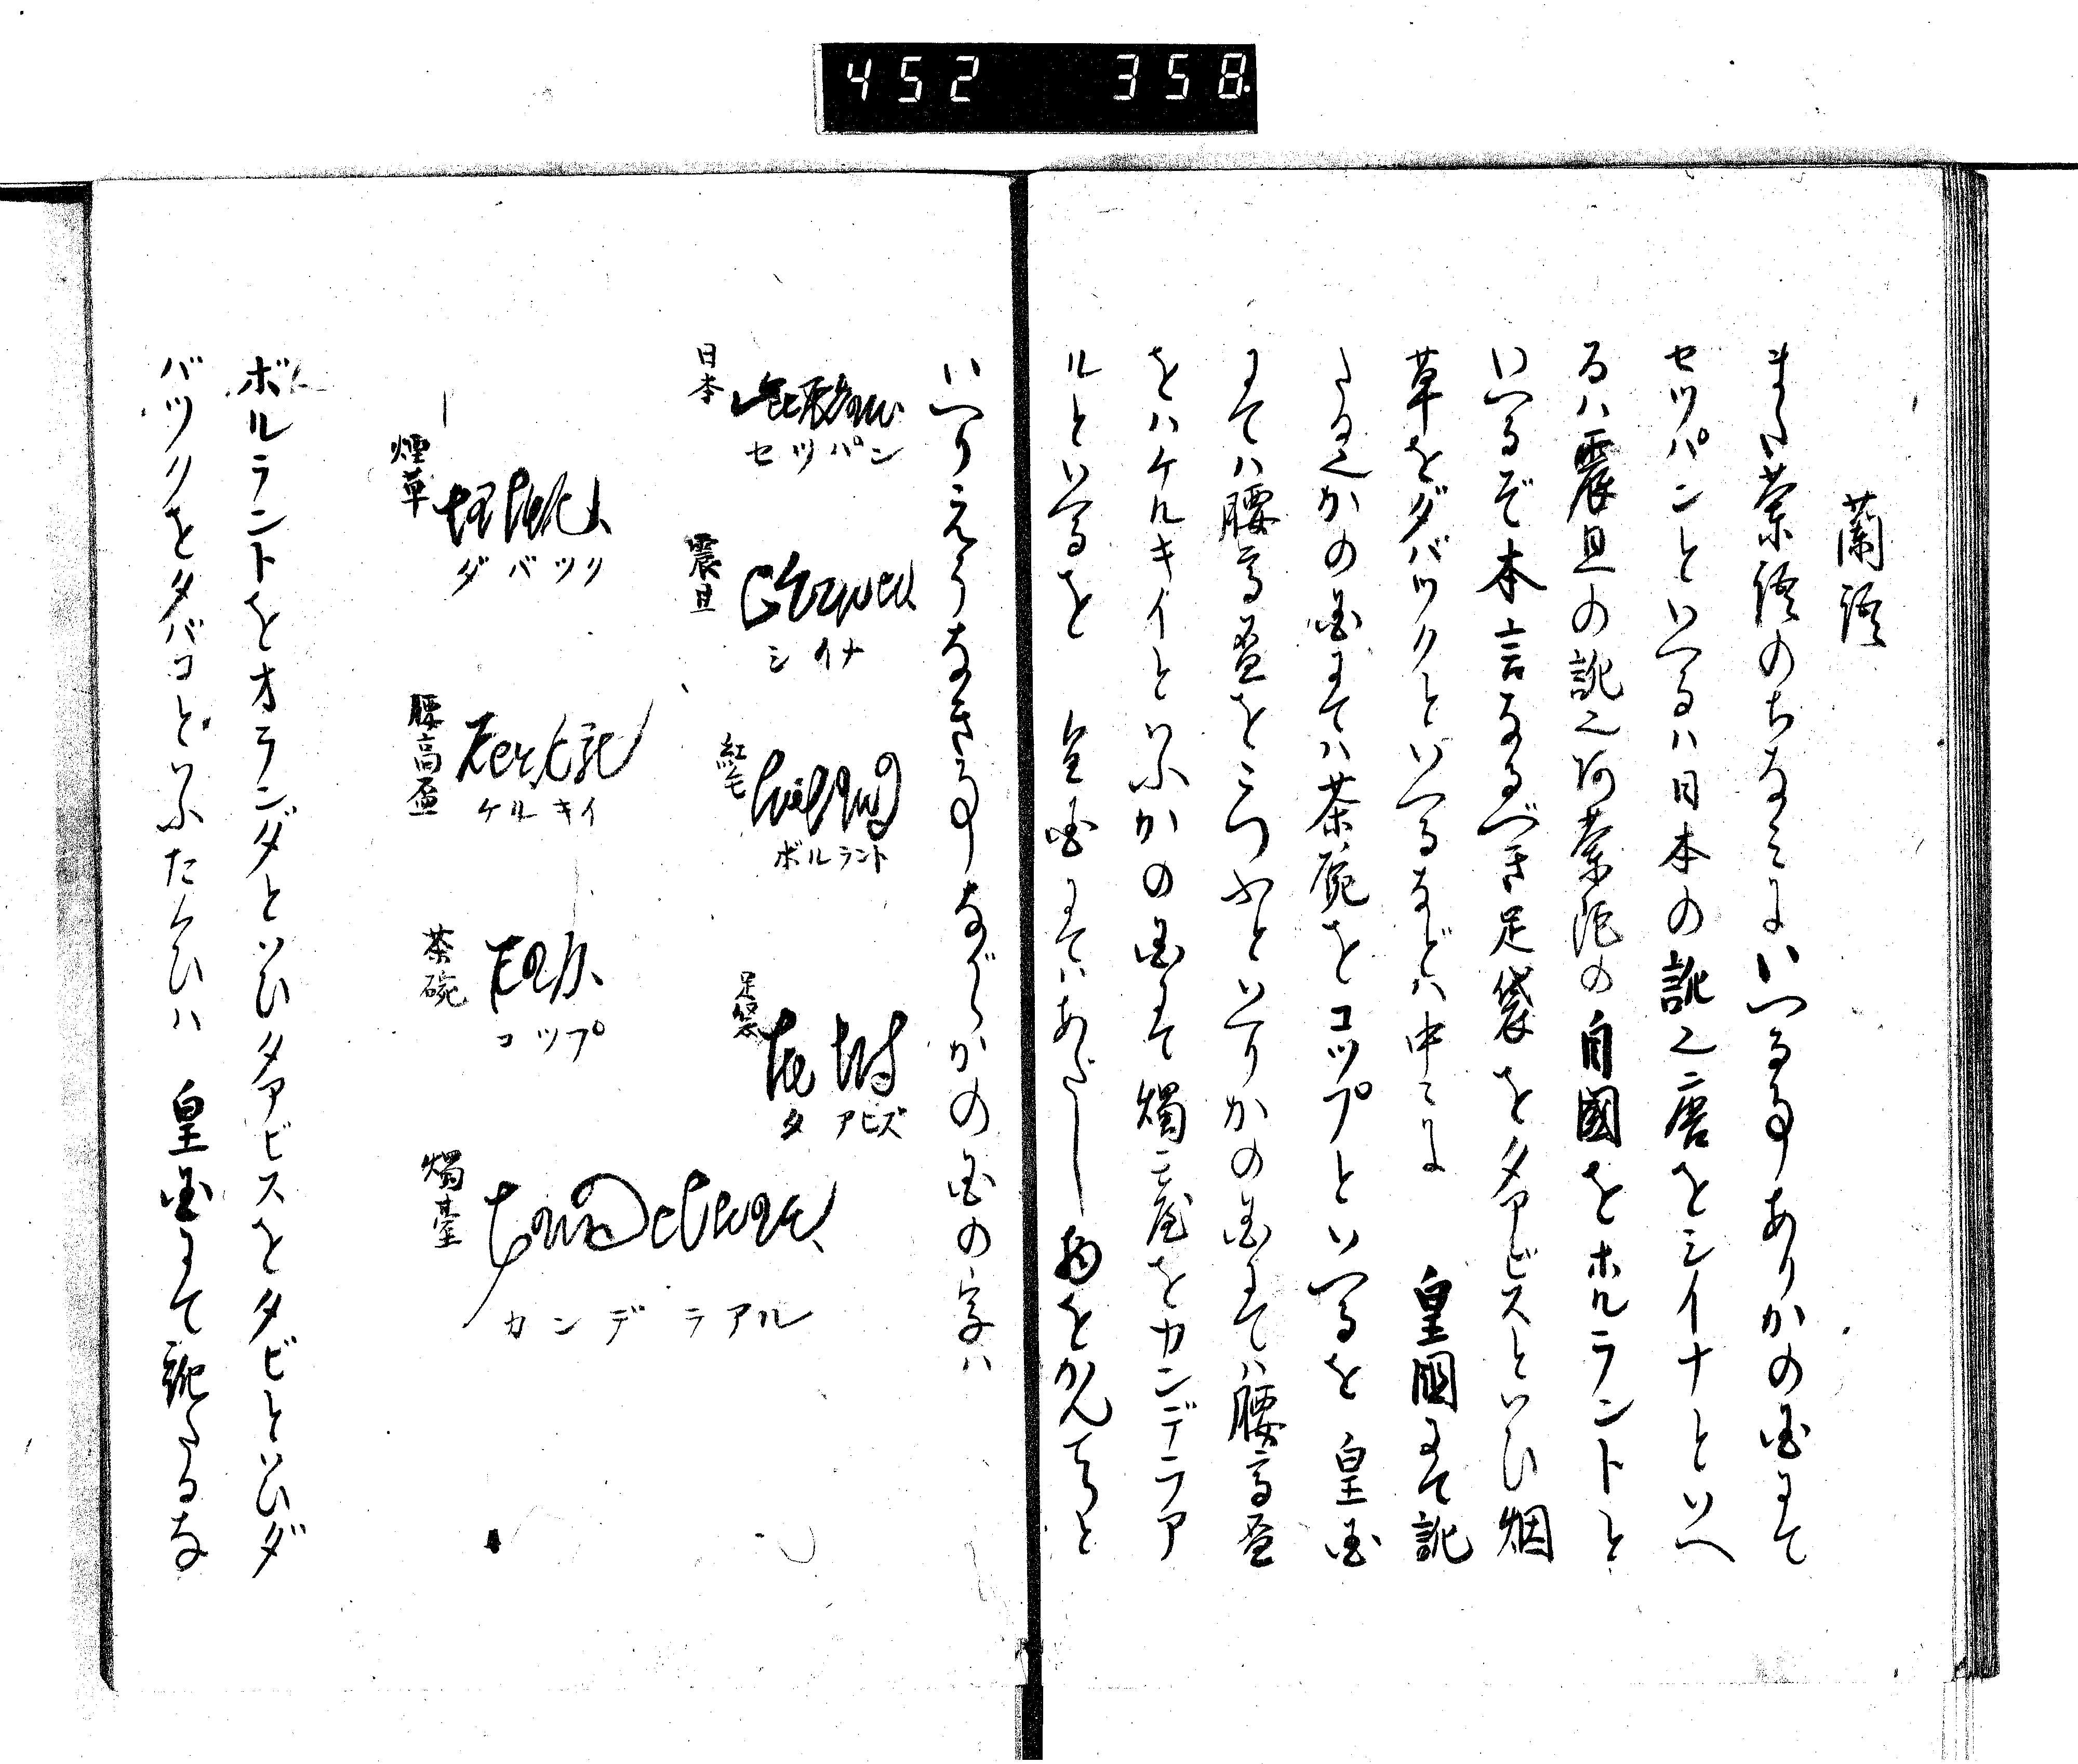 452 358
蘭語
また蘭語のちなみにいへる事ありかの国にて
セツパンといへるハ日本の訛也唐をシイナといへ
るハ震旦の訛也阿蘭陀の自國をホルラントと
いへるぞ本言なるべき足袋をタアビスといひ烟
草をダバツクといへるなどハ中々に 皇國にて訛
たる也かの国にてハ茶碗をコツプといへるを 皇国
にてハ腰高盃をこつふといへりかの国にてハ腰高盃
をハケルキイといふかの国にて燭台をカンデラア
ルといへるを 皇国にてハあかし物をかんてらと
いへりえうなき事ながらかの国の字ハ
日本
セツパン
震旦
シイナ
紅毛
ボルラント
足袋
タアビズ
煙草
ダバツク
腰高盃
ケルキイ
茶碗
コツプ
燭臺
カンデラアル
ボルラントをオランダといひタアビスをタビといひダ
バツクをタバコといふたくひハ 皇国にて訛たるな